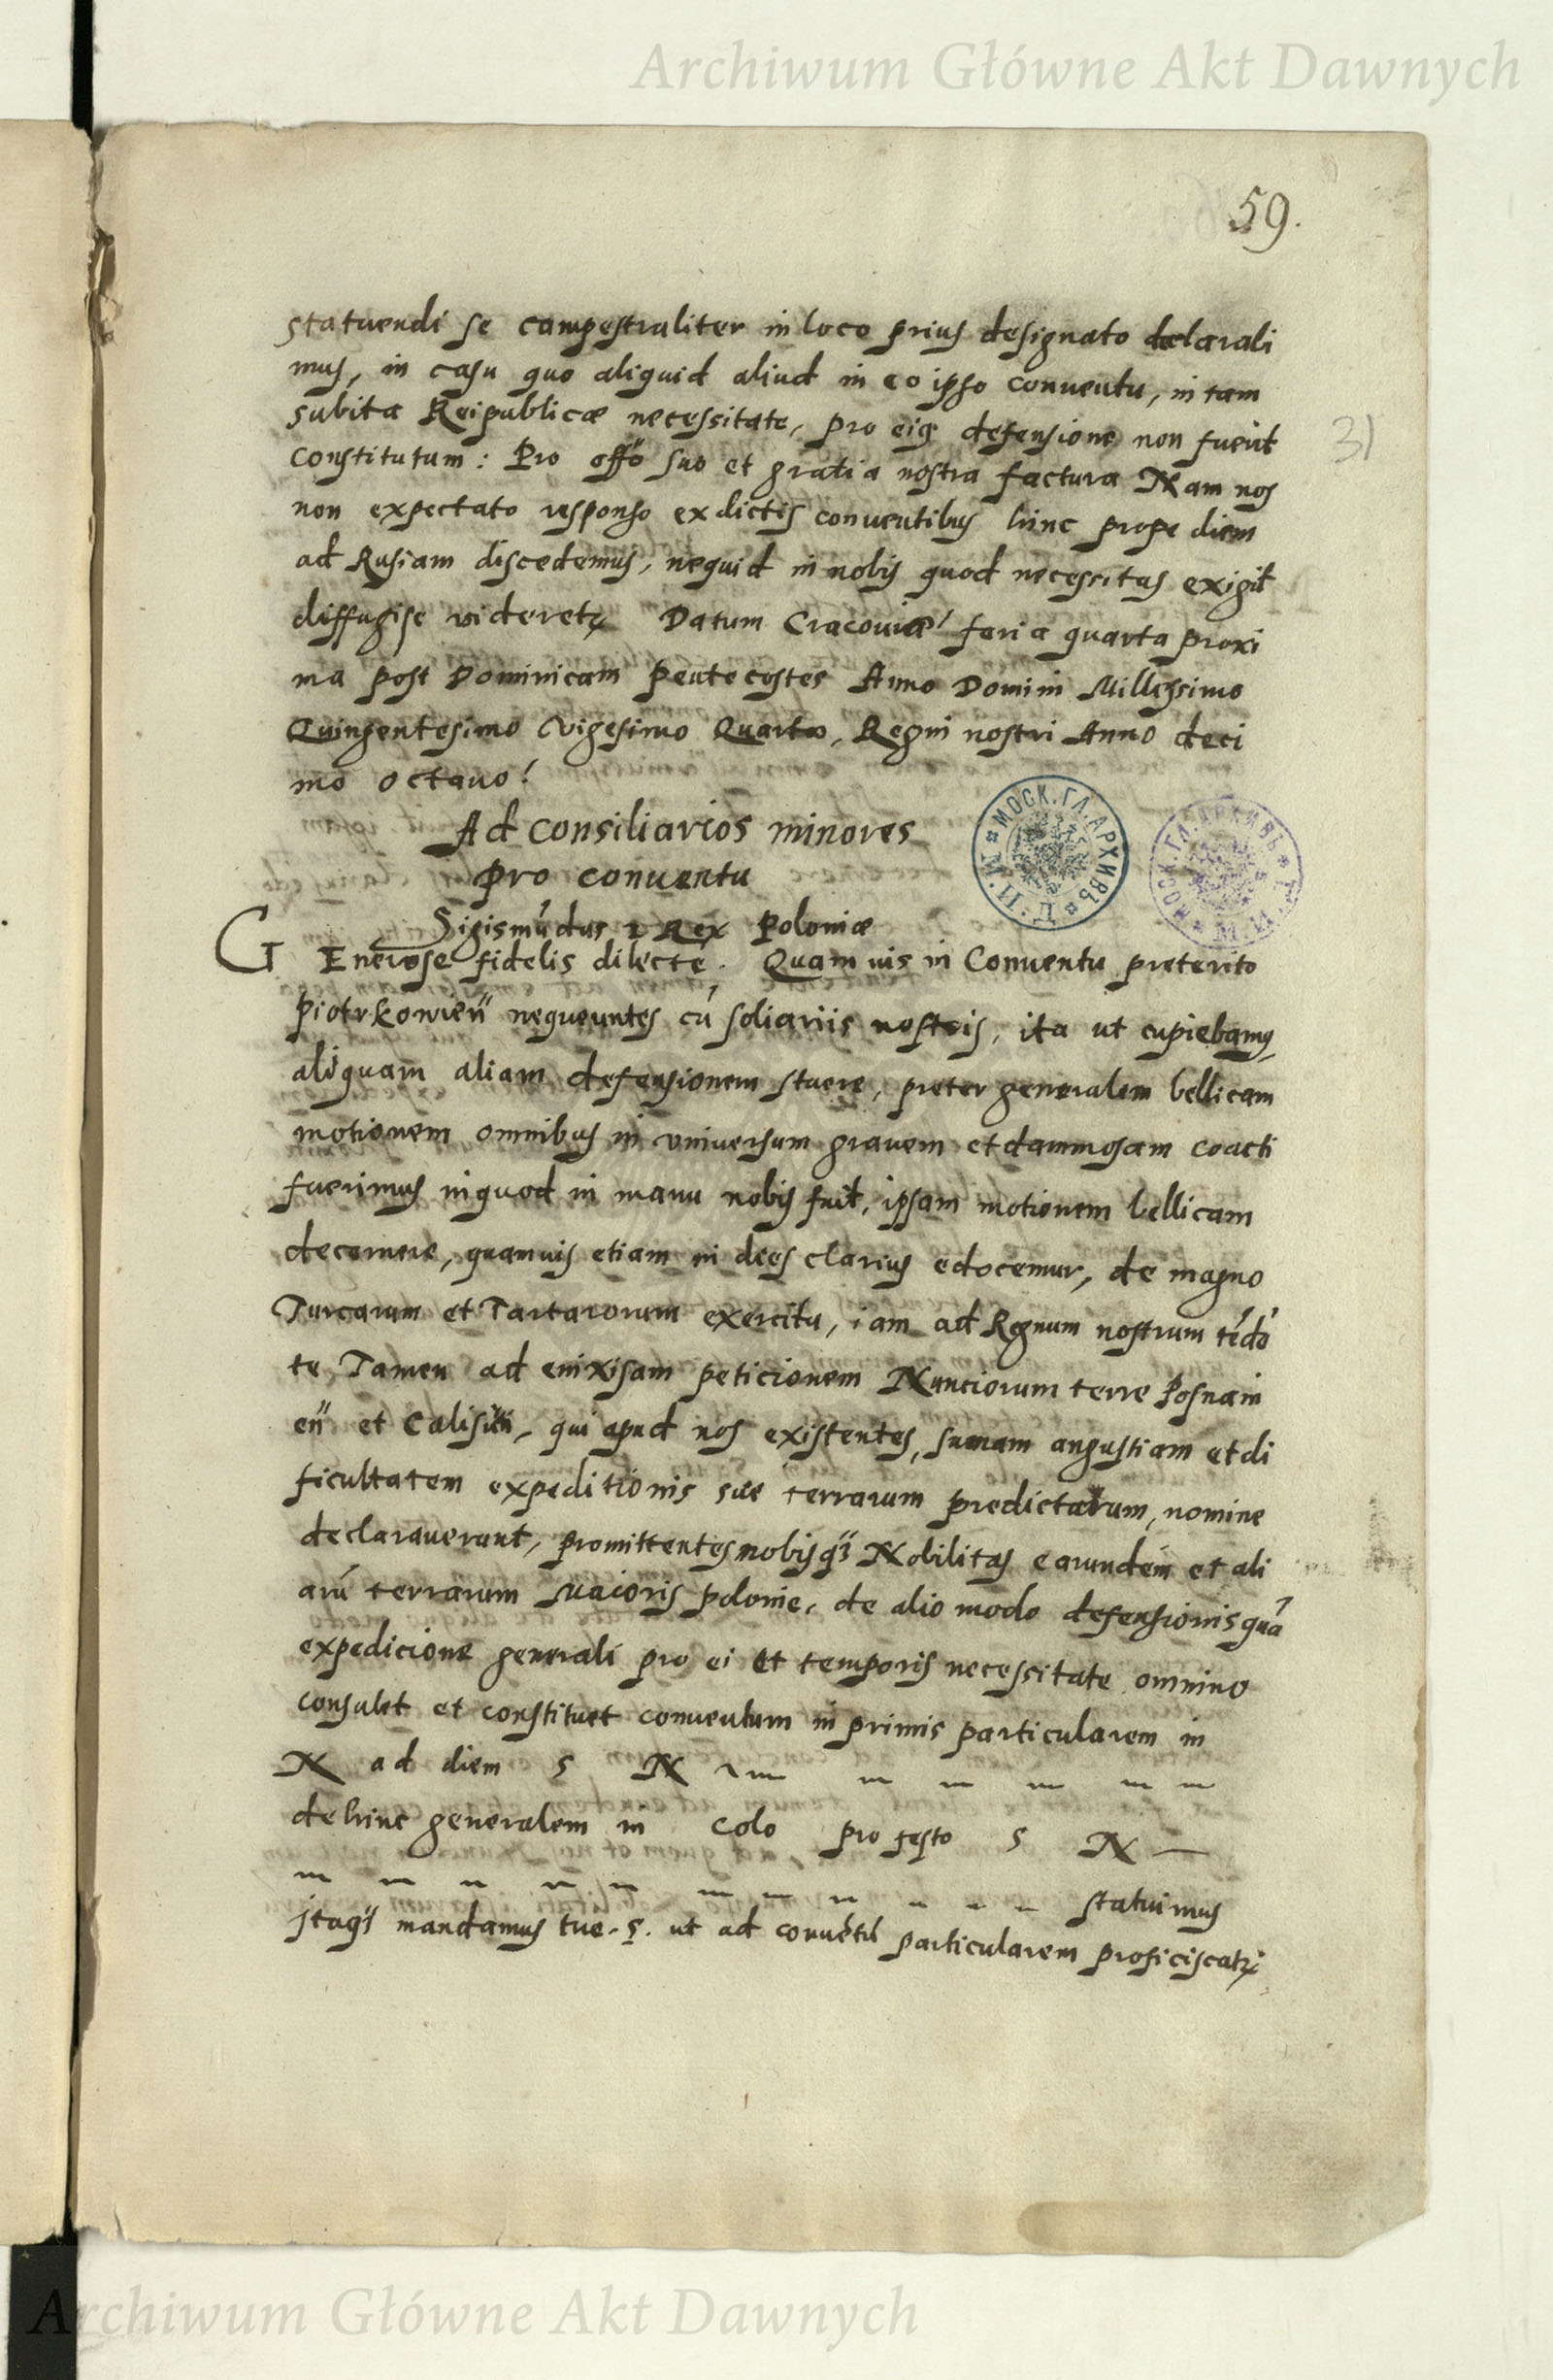 Archiwum Główne Akt Dawnych
59.
statuendi se campestraliter in loco prius designato declarali
mus, in casu quo aliquid aliud in eo ipso conuentu, in tam
subita Reipublicæ necessitate, pro eiꝰ defensione non fuerit
31
constitutum: Pro offō suo et gratia nostra factura Nam nos
non expectato responso ex dictis conuentibus hinc prope diem
ad Rusiam discedemus, nequid in nobis quod necessitas exigit
diffugise videretꝛ Datum Cracouiæ feria quarta proxi
ma post Dominicam pentecostes Anno Domini Millessimo
Quingentesimo vigesimo Quarto, Regni nostri Anno deci
mo octauo.
Ad consiliarios minores
pro conuentu
МОСК. ГЛ. АРХИВЪ
МОСК. ГЛ. АРХИВЪ
Sigismūdus I Rex Poloniæ
GEnerose fidelis dilecte. Quam uis in Conuentu preterito
piotrkowien̄ nequeuntes cū soliariis nostris, ita ut cupiebamꝰ
aliquam aliam defensionem stuere, preter generalem bellicam
motionem omnibus in vniuersum grauem et damnosam coacti
fuerimus inquod in manu nobis fuit, ipsam motionem bellicam
decernere, quamuis etiam in dies clarius edocemur, de magno
Turcarum et Tartarorum exercitu, iam ad Regnum nostrum tēdē
te Tamen ad enixisam peticionem Nunciorum terre Posnani
en̄ et Calisien̄, qui apud nos existentes, sumam angustiam et di
ficultatem expeditionis sue terrarum predictarum, nomine
declarauerunt, promittentes nobis qꝫ Nobilitas earundem et ali
arū terrarum Maioris polonie, de alio modo defensionis quā
expedicione generali pro ei et temporis necessitate omnino
consulet et constituet conuentum in primis particularem in
N ad diem S N
dehinc generalem in Colo pro festo S N
statuimus
Itaqꝫ mandamus tue. S. ut ad conuētū particularem proficiscatꝛ
Archiwum Główne Akt Dawnych